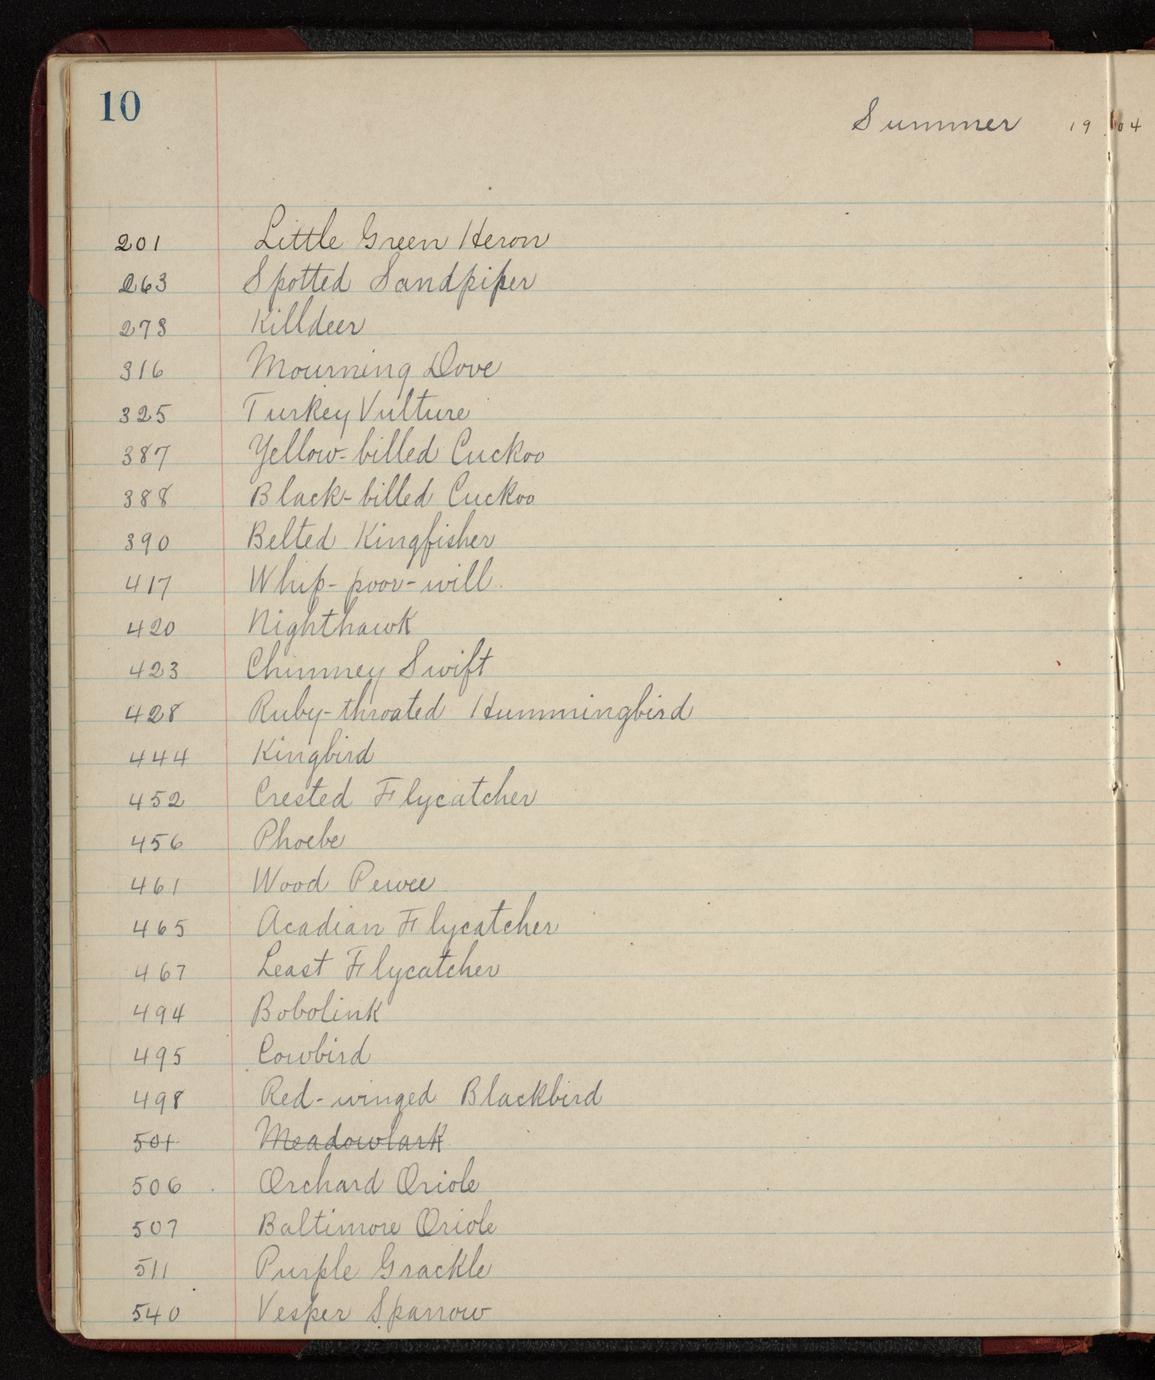 10
Summer 1904
201 Little Green Heron
263 Spotted Sandpiper
273 Killdeer
316 Mourning Dove
325 Turkey Vulture
387 Yellow-billed Cuckoo
388 Black-billed Cuckoo
390 Belted Kingfisher
417 Whip-poor-will.
420 Nighthawk
423 Chimney Swift
428 Ruby-throated Hummingbird
444 Kingbird
452 Crested Flycatcher
456 Phoebe
461 Wood Pewee
465 Acadian Flycatcher
467 Least Flycatcher
494 Bobolink
495 Cowbird
498 Red-winged Blackbird
501 Meadowlark
506 Orchard Oriole
507 Baltimore Oriole
511 Purple Grackle
540 Vesper Sparrow